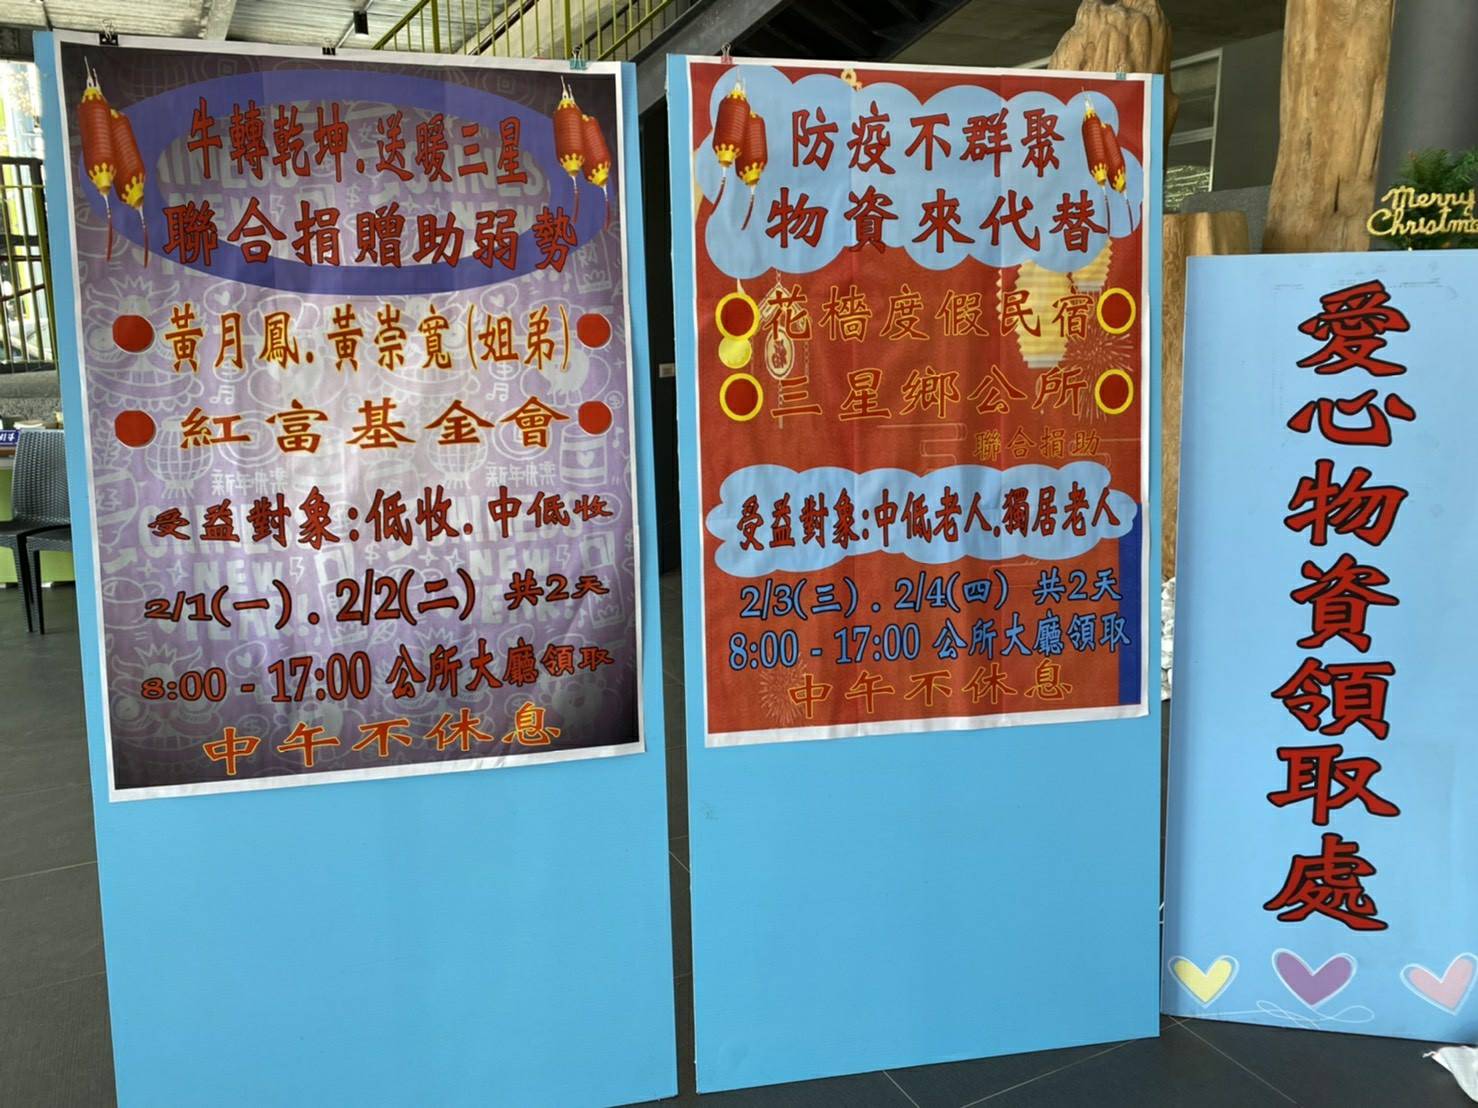 牛轉乾坤.送暖三星
聯合捐贈助弱勢
黃月鳳.黃崇寬(姐弟)
紅富基金會
新年快樂
受益對象:低收.中低收
2/1(一).2/2(二) 共2天
8:00 - 17:00 公所大廳領取
中午不休息
防疫不群聚
物資來代替
花檣度假民宿
三星鄉公所
聯合捐助
受益對象:中低老人.獨居老人
2/3(三).2/4(四) 共2天
8:00 - 17:00 公所大廳領取
中午不休息
愛心物資領取處
Merry
Christmas